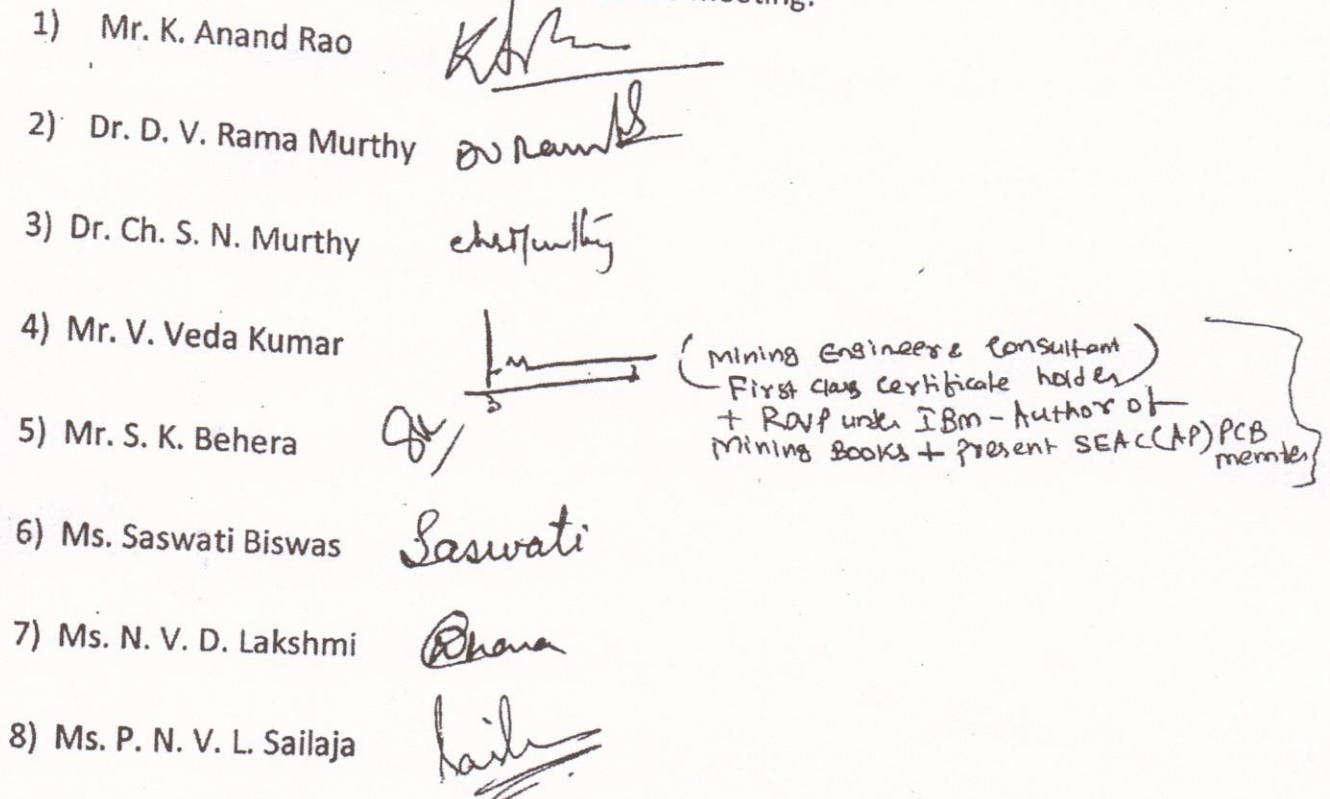 meeting.
1) Mr. K. Anand Rao
2) Dr. D. V. Rama Murthy
3) Dr. Ch. S. N. Murthy
4) Mr. V. Veda Kumar
(Mining Engineer & Consultant)
First class certificate holder
+ under IBM - Author of
Mining Books + Present SEAC (AP) PCB
member
5) Mr. S. K. Behera
6) Ms. Saswati Biswas Saswati
7) Ms. N. V. D. Lakshmi
8) Ms. P. N. V. L. Sailaja